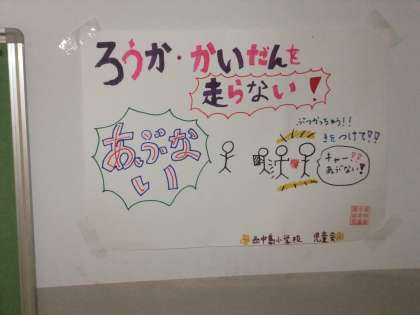 ろうか・かいだんを
走らない!
あぶな
いー
ぶつかっちゃう!!
きをつけて??
チャー??
あぶない!!
西中島小学校 児童会